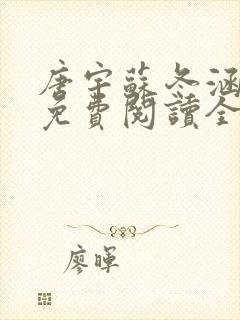 唐宇蘇冬涵
免費閱讀全
廖暉